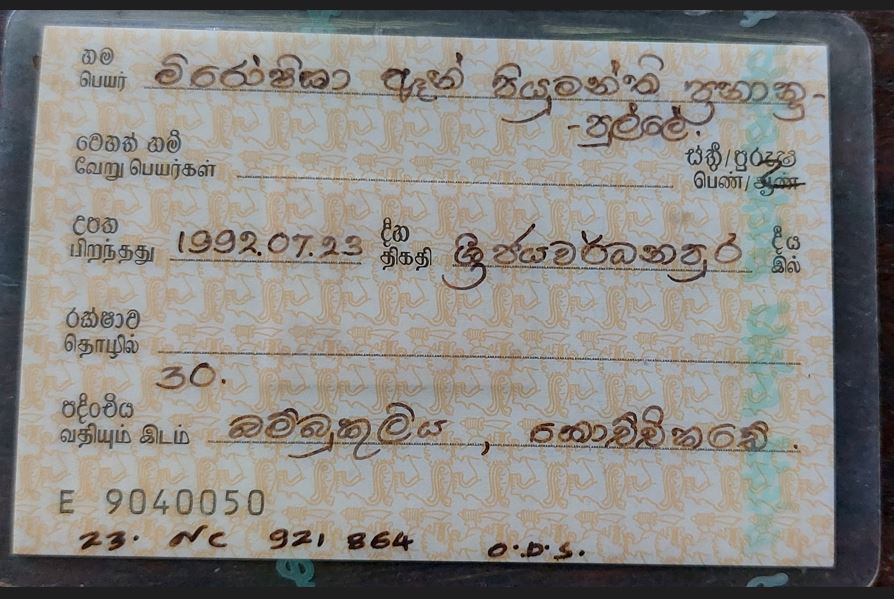 නම මිරෝෂිකා ඈන් පියුමන්ති ප්‍රනාන්දු-
பெயர்
-පුල්ලේ.
වෙනත් නම්
வேறு பெயர்கள்
ස්ත්‍රී/පුරුෂ
பெண்/ஆண்
උපත
பிறந்தது
1992.07.23
දින
திகதி
ශ්‍රී ජයවර්ධනපුර
දීය
இல்
රක්ෂාව
தொழில்
30.
පදිංචිය
வதியும் இடம்
බම්බුකුලිය, කොච්චිකඩේ.
E 9040050
23. NC 921 864 O.D.S.